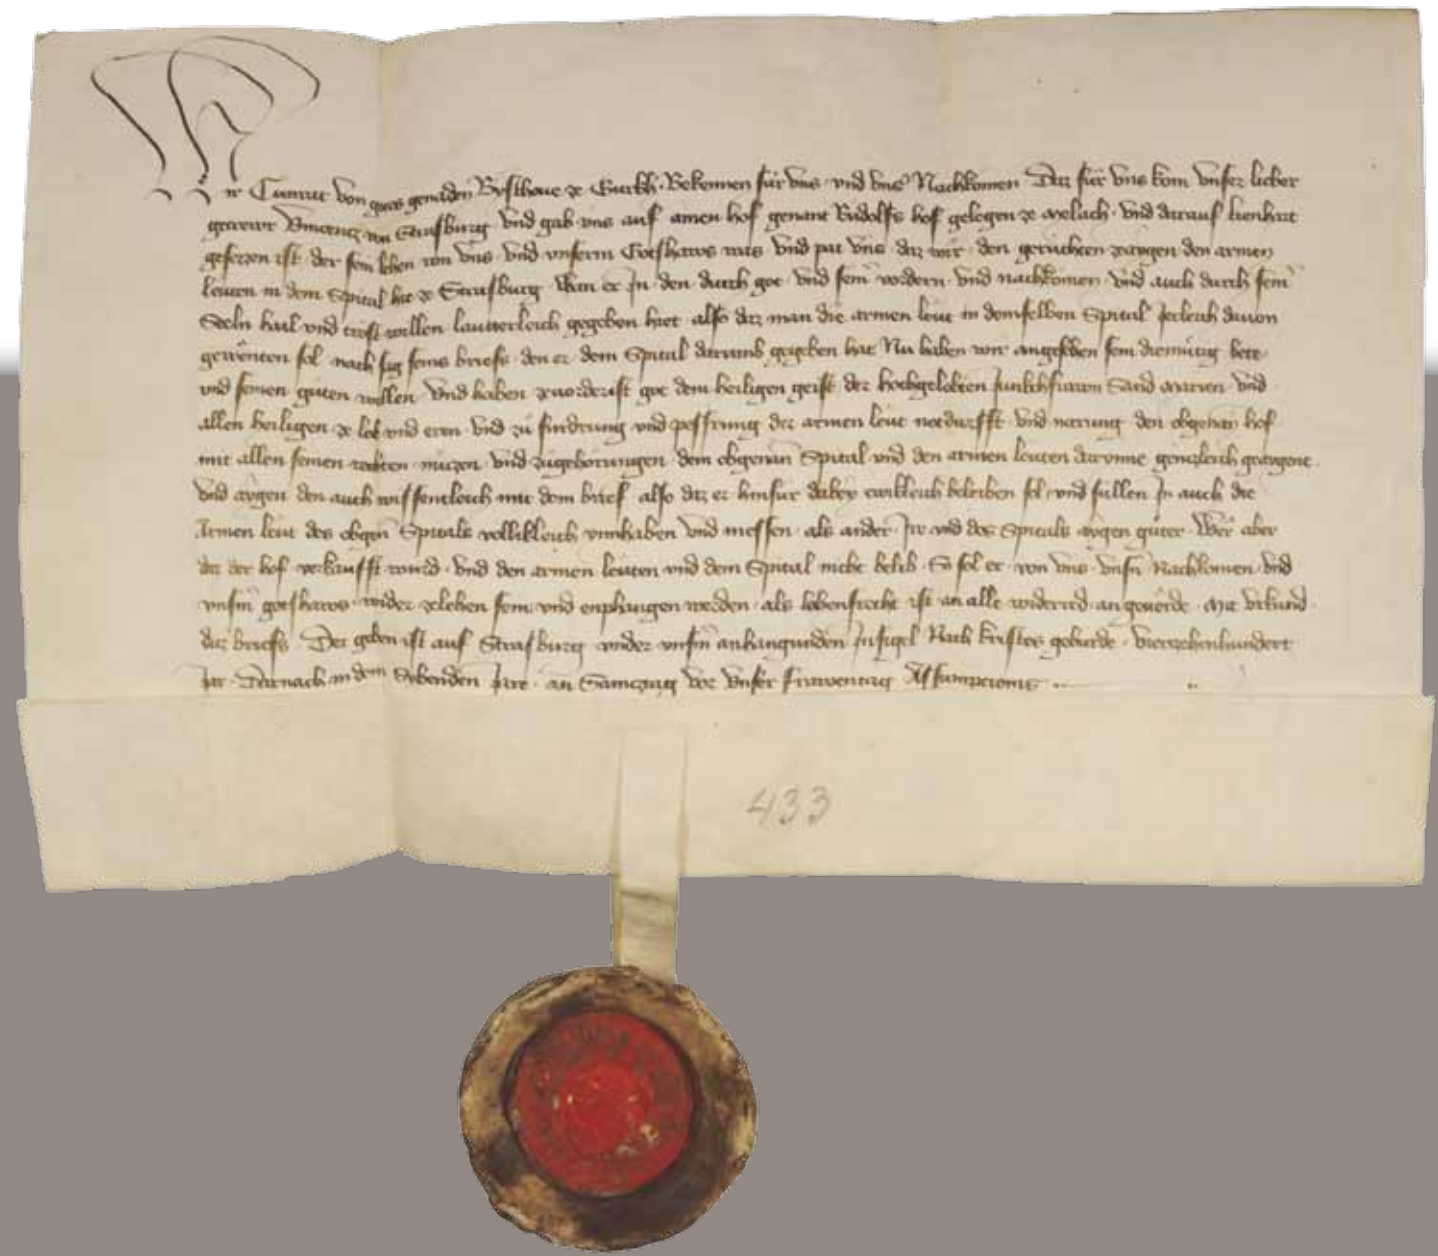 Wir Cunrat von gotes genaden Bysthoue ze Gurkh · Bekennen für vns · vnd vns͛ Nachkomen Daz für vns kom vnser lieber
getrewr Vincencz von Strasburg · Vnd gab vns auf ainen hof genant Rudolfs hof gelegen ze · vnd darauf lienhart
gesezzen ist · der sein lehen von vns · vnd vnserm Gotshaws was · vnd pat vns · daz wir · den geruchten ze aygen den armen
leuten in dem Spital hie ze Strasburg · Wan er In · den · durch got · vnd sein͛ vordern · vnd nachkomen · vnd auch durch sein͛
Seeln hail vnd trost willen lautterleich gegeben hiet also daz man die armen leut in demselben Spital Jerleich dauon
sol · nach sag seins briefs · den er · dem Spital darumb gegeben hat Nu haben wir angesehen sein diemütig bete ·
vnd seinen guten willen · Vnd haben zuuorderist got dem heiligen geist der hochgelobten Junkchfrawn Sand Marien · vnd
allen heiligen ze lob vnd eren · vnd zu fürdrung vnd pessrung der armen leut notdurfft · vnd narung den obgenan̄ hof
mit allen seinen rechten · nüczen · vnd zugehörungen · dem obgenan̄ Spital vnd den armen leuten darynne genczleich geaygent ·
Vnd aygen den auch wissentleich mit dem brief · also daz er hinfür dabey ewikleich beleiben sol · vnd süllen In auch die
Armen leut des obgen̄ Spitals vollikleich innhaben vnd niessen · als ander Ir vnd des Spitals aygen güter · Wer aber
daz der hof verkaufft würd · vnd den armen leuten vnd dem Spital nicht belib · So sol er · von vns · vnsn̄ Nachkomen · vnd
vnsm̄ gotshaws · wider zelehen sein vnd enphangen werden · als lehensrecht ist an alle widerred · an geuerde · Mit vrkund ·
daz briefs · Der geben ist auf Strasburg vnder vnsm̄ anhangunden Insigel Nach kristes geburde · vierzehenhundert
Jar · Darnach in dem Sybenden Jare · an Samcztag vor vnser frawentag Assumpcionis
433